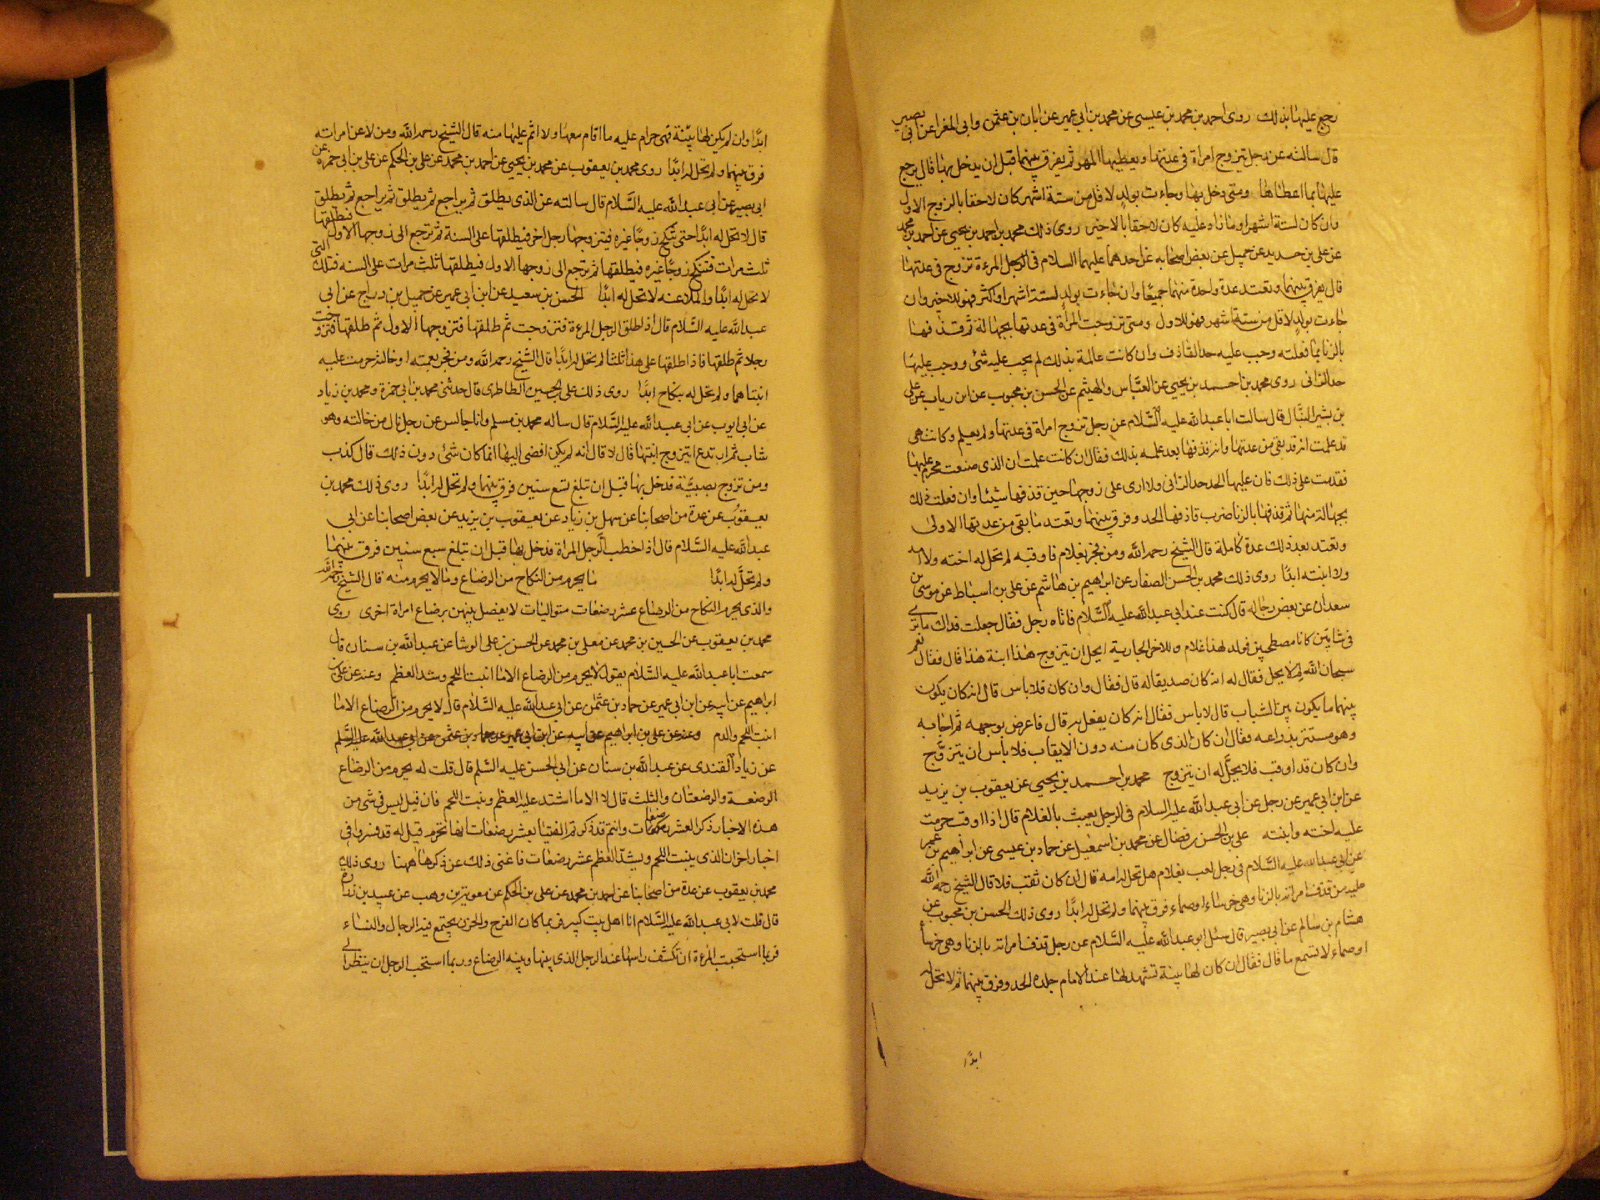 رجع عليها بذلك روى احمد بن محمد بن عيسى عن محمد بن ابى عمير عن ابان بن عثمن وابى المغرا عن ابى بصير
قال سالته عن رجل تزوج امراة فى عدتها ويعطيها المهر ثم يفرق بينهما قبل ان يدخل بها قال يرجع
عليها بما اعطاها ومتى دخل بها وجاءت بولد لاقل من ستة اشهر كان لاحقا بالزوج الاول
وان كان لستة اشهر او ما زاد عليه كان لاحقا بالاخير روى ذلك محمد بن احمد بن يحيى عن احمد بن محمد
عن على بن حديد عن جميل عن بعض اصحابه عن احدهما عليهما السلام فى الرجل المرءة تزوج فى عدتها
قال يفرق بينهما وتعتد عدة واحدة منهما جميعا وان جاءت بولد لستة اشهر او اكثر فهو للاخير وان
جاءت بولد لاقل من ستة اشهر فهو للاول ومتى تزوجت المراة فى عدتها بجهالة ثم قذفها
بالزنا بما فعلته وجب عليه حد القاذف وان كانت عالمة بذلك لم يجب عليه شئ ووجب عليها
حد الزانى روى محمد بن احمد بن يحيى عن العباس والهيثم عن الحسن بن محبوب عن ابن رياب عن على
بن بشير النبال قال سالت ابا عبد الله عليه السلام عن رجل تزوج امراة فى عدتها ولم يعلم وكانت هى
قد علمت انه قد بقى من عدتها وانه قذفها بعد علمه بذلك فقال ان كانت علمت ان الذى صنعت محرم عليها
فقدمت على ذلك فان عليها الحد حد الزانى ولا ارى على زوجها حين قذفها شيئا وان فعلت ذلك
بجهالة منها ثم قذفها بالزنا ضرب قاذفها الحد وفرق بينهما وتعتد ما بقى من عدتها الاولى
وتعتد بعد ذلك عدة كاملة قال الشيخ رحمه الله ومن فجر بغلام فاوقبه لم يحل له اخته ولا امه
ولا ابنته ابدا روى ذلك محمد بن الحسن الصفار عن ابراهيم بن هاشم عن على بن اسباط عن موسى بن
سعدان عن بعض رجاله قال كنت عند ابى عبد الله عليه السلام فاتاه رجل فقال جعلت فداك ما ترى
فى شابين كانا مصطحبين فولد لهذا غلام وللاخر الجارية ايحل ان يتزوج هذا ابنة هذا قال فقال نعم
سبحان الله لم لا يحل فقال له انه كان صديقا له قال فقال وان كان فلا باس قال انه كان يكون
بينهما ما يكون بين الشباب قال لا باس فقال انه كان يفعل به قال فاعرض بوجهه ثم اجابه
وهو مستتر بذراعه فقال ان كان الذى كان منه دون الايقاب فلا باس ان يتزوج
وان كان قد اوقب فلا يحل له ان يتزوج محمد بن احمد بن يحيى عن يعقوب بن يزيد
عن ابن ابى عمير عن رجل عن ابى عبد الله عليه السلام فى الرجل يعبث بالغلام قال اذا اوقب حرمت
عليه اخته وابنته على بن الحسن بن فضال عن محمد بن اسمعيل عن حماد بن عيسى عن ابراهيم بن عمر
عن ابى عبد الله عليه السلام فى رجل لعب بغلام هل تحل له امه قال ان كان ثقب فلا قال الشيخ رحمه الله
عليه من قذف امراته بالزنا وهى خرساء او صماء فرق بينهما ولم تحل له ابدا روى ذلك الحسن بن محبوب عن
هشام بن سالم عن ابى بصير قال سئل ابو عبد الله عليه السلام عن رجل قذف امراته بالزنا وهى خرسا
او صماء لا تسمع ما قال فقال ان كان لها بينة تشهد لها عند الامام جلده الحد وفرق بينهما ثم لا تحل له
ابدا
ابدا وان لم يكن لها بينة فهى حرام عليه ما اقام معها ولا اثم عليها منه قال الشيخ رحمه الله ومن لاعن امراته
فرق بينهما ولم تحل له ابدا روى محمد بن يعقوب عن محمد بن يحيى عن احمد بن محمد عن على بن الحكم عن على بن ابى حمزة عن
ابى بصير عن ابى عبد الله عليه السلام قال سالته عن الذى يطلق ثم يراجع ثم يطلق ثم يراجع ثم يطلق
قال لا تحل له ابدا حتى تنكح زوجا غيره فيتزوجها رجل اخر فيطلقها على السنة ثم ترجع الى زوجها الاول فيطلقها
ثلث مرات فتنكح زوجا غيره فيطلقها ثم ترجع الى زوجها الاول فيطلقها ثلث مرات على السنه فتلك التى
لا تحل له ابدا والملاعنه لا تحل له ابدا الحسين بن سعيد عن ابن ابى عمير عن جميل بن دراج عن ابى
عبد الله عليه السلام قال اذا طلق الرجل المرءة فتزوجت ثم طلقها فتزوجها الاول ثم طلقها فتزوجت
رجلا ثم طلقها فاذا طلقها على هذا ثلثا لم تحل له ابدا قال الشيخ رحمه الله ومن فجر بعمته او خالته حرمت عليه
ابنتاهما ولم تحل له بنكاح ابدا روى ذلك على بن الحسين الطاطرى قال حدثنى محمد بن ابى حمزة ومحمد بن زياد
عن ابى ايوب عن ابى عبد الله عليه السلام قال ساله محمد بن مسلم وانا جالس عن رجل نال من خالته وهو
شاب ثم ارتدع ايتزوج ابنتها قال لا قال انه لم يكن افضى اليها انما كان شئ دون ذلك قال كذب
ومن تزوج بصبية فدخل بها قبل ان تبلغ تسع سنين فرق بينهما ولم تحل له ابدا روى ذلك محمد بن
يعقوب عن عدة من اصحابنا عن سهل بن زياد عن يعقوب بن يزيد عن بعض اصحابنا عن ابى
عبد الله عليه السلام قال اذا خطب الرجل المراة فدخل بها قبل ان تبلغ سبع سنين فرق بينهما
ولم تحل له ابدا ما يحرم من النكاح من الرضاع وما لا يحرم منه قال الشيخ رحمه الله
والذى يحرم النكاح من الرضاع عشر رضعات متواليات لا يفصل بينهن برضاع امراة اخرى روى
محمد بن يعقوب عن الحسين بن محمد عن معلى بن محمد عن الحسن بن على الوشا عن عبد الله بن سنان قال
سمعت ابا عبد الله عليه السلام يقول لا يحرم من الرضاع الا ما انبت اللحم وشد العظم وعنه عن على بن
ابراهيم عن ابيه عن ابن ابى عمير عن حماد بن عثمن عن ابى عبد الله عليه السلام قال لا يحرم من الرضاع الا ما
انبت اللحم والدم وعنه عن على بن ابراهيم عن ابيه عن ابن ابى عمير عن حماد بن عثمن عن ابى عبد الله عليه السلم
عن زياد القندى عن عبد الله بن سنان عن ابى الحسن عليه السلم قال قلت له يحرم من الرضاع
الرضعة والرضعتان والثلث قال لا الا ما اشتد عليه العظم ونبت اللحم فان قيل ليس فى شئ من
هذه الاخبار ذكر العشر رضعات وانتم قد ذكرتم الفتيا بعشر رضعات انها تحرم قيل له قد فسروا فى
اخبار اخر ان الذى ينبت اللحم ويشد العظم عشر رضعات فاغنى ذلك عن ذكرها ههنا روى ذلك
محمد بن يعقوب عن عدة من اصحابنا عن احمد بن محمد عن على بن الحكم عن معوية بن وهب عن عبيد بن زرارة
قال قلت لابى عبد الله عليه السلام انا اهل بيت كبير فربما كان الفرح والحزن يجتمع فيه الرجال والنساء
فربما استحيت المرءة ان تكشف راسها عند الرجل الذى بينها وبينه الرضاع وربما استحيى الرجل ان ينظر الى